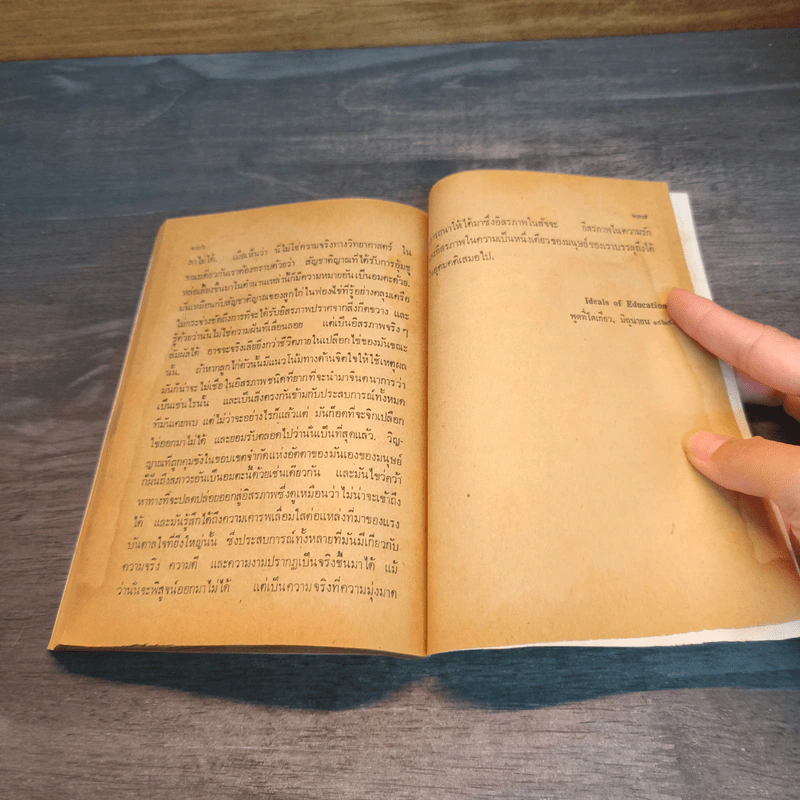 ๑๓๖
หาไม่ได้. เมื่อเห็นว่า นี่ไม่ใช่ความจริงทางวิทยาศาสตร์ ใน
ขณะเดียวกันเราต้องทราบด้วยว่า สัญชาติญาณที่ได้รับการอุ้มชู
หล่อเลี้ยงขึ้นมาในตำนานเหล่านี้ก็มีความหมายอันเป็นอมตะด้วย.
มันเหมือนกับสัญชาติญาณของลูกไก่ในฟองไข่ที่รู้อย่างคลุมเครือ
ไม่กระจ่างชัดถึงการที่จะได้รับอิสรภาพปราศจากสิ่งกีดขวาง และ
รู้ด้วยว่านั่นไม่ใช่ความฝันที่เลื่อนลอย แต่เป็นอิสรภาพจริง ๆ
สัมผัสได้ อาจจะจริงเสียยิ่งกว่าชีวิตภายในเปลือกไข่ของมันขณะ
นั้น. ถ้าหากลูกไก่ตัวนั้นมีแนวโน้มทางด้านจิตใจให้ใช้เหตุผล
มันก็น่าจะไม่เชื่อในอิสรภาพชนิดที่ยากที่จะนำมาจินตนาการว่า
เป็นเช่นไรนั้น และเป็นสิ่งตรงกันข้ามกับประสบการณ์ทั้งหมด
ที่มันเคยพบ แต่ไม่ว่าจะอย่างไรก็แล้วแต่ มันก็อดที่จะจิกเปลือก
ไข่ออกมาไม่ได้ และยอมรับตลอดไปว่านั่นเป็นที่สุดแล้ว. วิญ-
ญาณที่ถูกคุมขังในขอบเขตจำกัดแห่งอัตตาของมันเองของมนุษย์
ก็ฝันถึงสภาวะอันเป็นอมตะนี้ด้วยเช่นเดียวกัน และมันไขว่คว้า
หาทางที่จะปลดปล่อยออกสู่อิสรภาพซึ่งดูเหมือนว่า ไม่น่าจะเข้าถึง
ได้ และมันรู้สึกได้ถึงความเคารพเลื่อมใสต่อแหล่งที่มาของแรง
บันดาลใจที่ยิ่งใหญ่นั้น ซึ่งประสบการณ์ทั้งหลายที่มันมีเกี่ยวกับ
ความจริง ความดี และความงามปรากฏเป็นจริงขึ้นมาได้ แม้
ว่านั่นจะพิสูจน์ออกมาไม่ได้ แต่เป็นความจริงที่ความมุ่งมาด
๑๓๗
ให้ได้มาซึ่งอิสรภาพในสัจจะ อิสรภาพในความรัก
อิสรภาพในความเป็นหนึ่งเดียวของมนุษย์ของเราบรรลุถึงได้
อุดมคติเสมอไป.
Ideals of Education
พุดที่โตเกียว, มิถุนายน